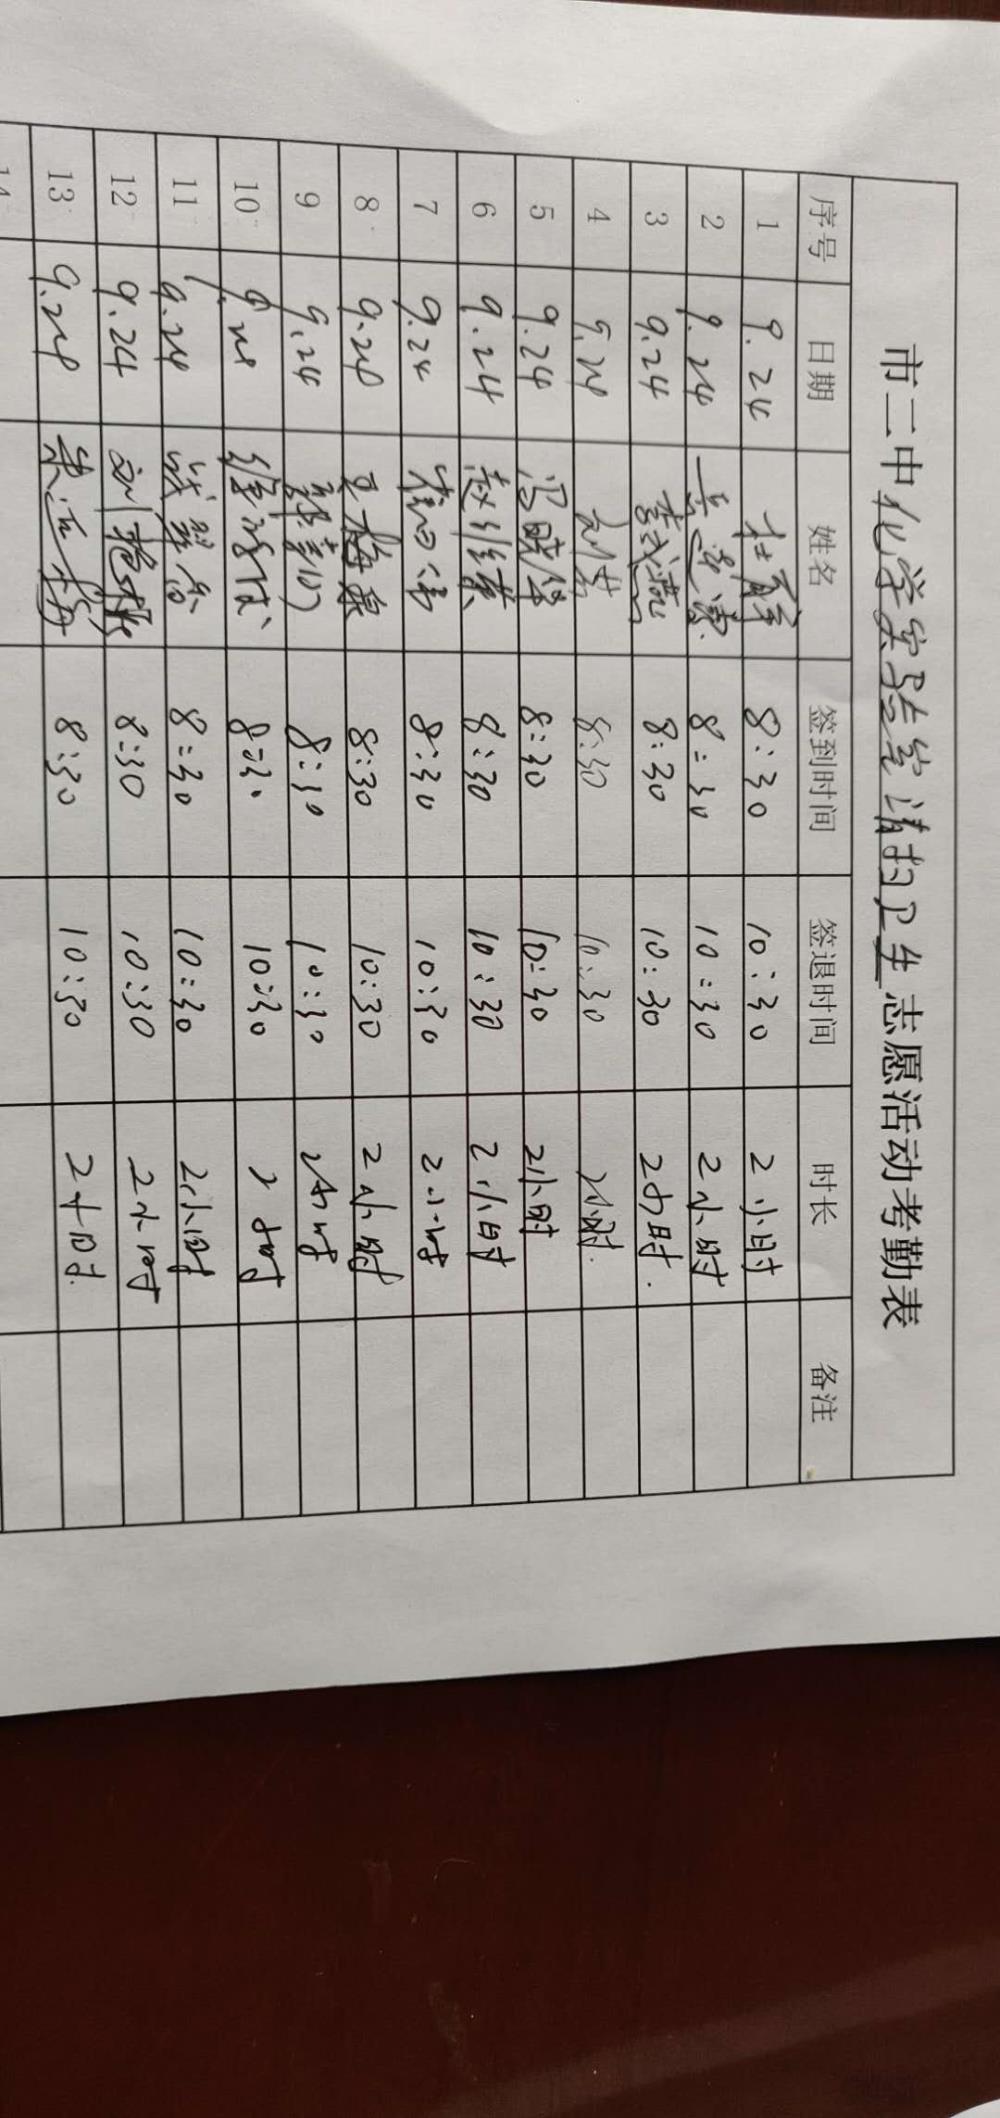 市二中化学实验室清扫卫生志愿活动考勤表
序号 日期 姓名 签到时间 签退时间 时长 备注
1 9.24 8:30 10:30 2小时
2 9.24 8:30 10:30 2小时
3 9.24 8:30 10:30 2小时.
4 9.24 8:30 10:30 2小时.
5 9.24 冯晓华 8:30 10:30 2小时
6 9.24 8:30 10:30 2小时
7 9.24 8:30 10:30 2小时
8 9.24 王梅 8:30 10:30 2小时
9 9.24 8:30 10:30 2小时
10 9.24 8:30 10:30 2小时
11 9.24 8:30 10:30 2小时
12 9.24 刘艳 8:30 10:30 2小时
13 9.24 8:30 10:30 2小时.
14